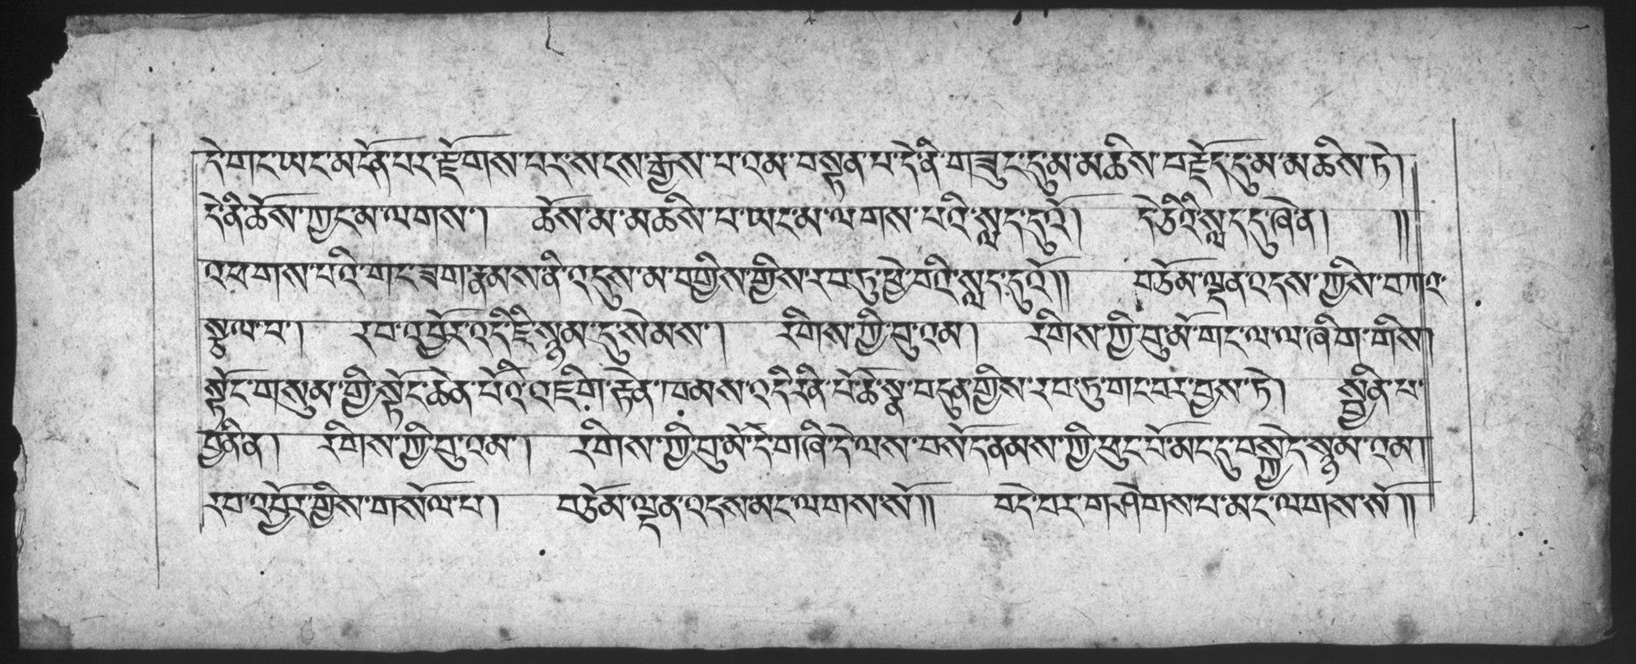 དེ་གང་ཡང་མངོན་པར་རྫོགས་པར་སངས་རྒྱས་པ་འམ་བསྟན་པ་དེ་ནི་གཟུང་དུ་མ་མཆིས་བརྗོད་དུ་མ་མཆིས་ཏེ།
དེ་ནི་ཆོས་ཀྱང་མ་ལགས། ཆོས་མ་མཆིས་པ་ཡང་མ་ལགས་པའི་སླད་དུའོ། དེ་ཅིའི་སླད་དུ་ཞེ་ན། །།
འཕགས་པའི་གང་ཟག་རྣམས་ནི་འདུས་མ་བགྱིས་གྱིས་རབ་ཏུ་ཕྱེ་བའི་སླད་དུའོ།། བཅོམ་ལྡན་འདས་ཀྱིས་བཀའ་
སྩལ་པ། རབ་འབྱོར་འདི་ཇི་སྙམ་དུ་སེམས། རིགས་ཀྱི་བུ་འམ། རིགས་ཀྱི་བུ་མོ་གང་ལ་ལ་ཞིག་གིས།
སྟོང་གསུམ་གྱི་སྟོང་ཆེན་པོའི་འཇིག་རྟེན་ཁམས་འདི་རིན་པོ་ཆེ་སྣ་བདུན་གྱིས་རབ་ཏུ་གང་བར་བྱས་ཏེ། སྦྱིན་པ་
བྱིན་ན། རིགས་ཀྱི་བུ་འམ། རིགས་ཀྱི་བུ་མོ་དེ་གཞི་དེ་ལས་བསོད་ནམས་ཀྱི་ཕུང་པོ་མང་དུ་བསྐྱེད་སྙམ་འམ།
རབ་འབྱོར་གྱིས་གསོལ་པ། བཅོམ་ལྡན་འདས་མང་ལགས་སོ།། བདེ་བར་གཤེགས་པ་མང་ལགས་སོ།།